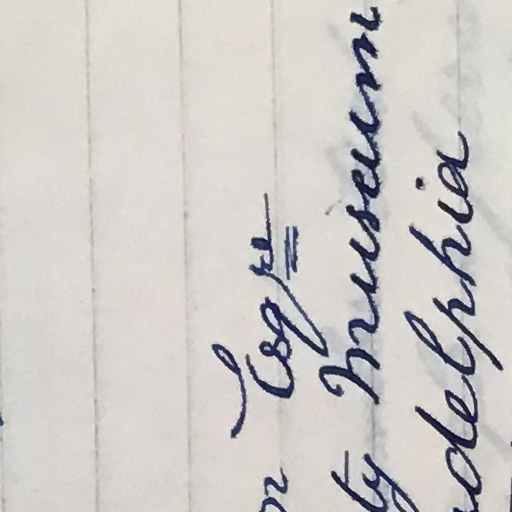 n Esqre
ty Museum
adelphia